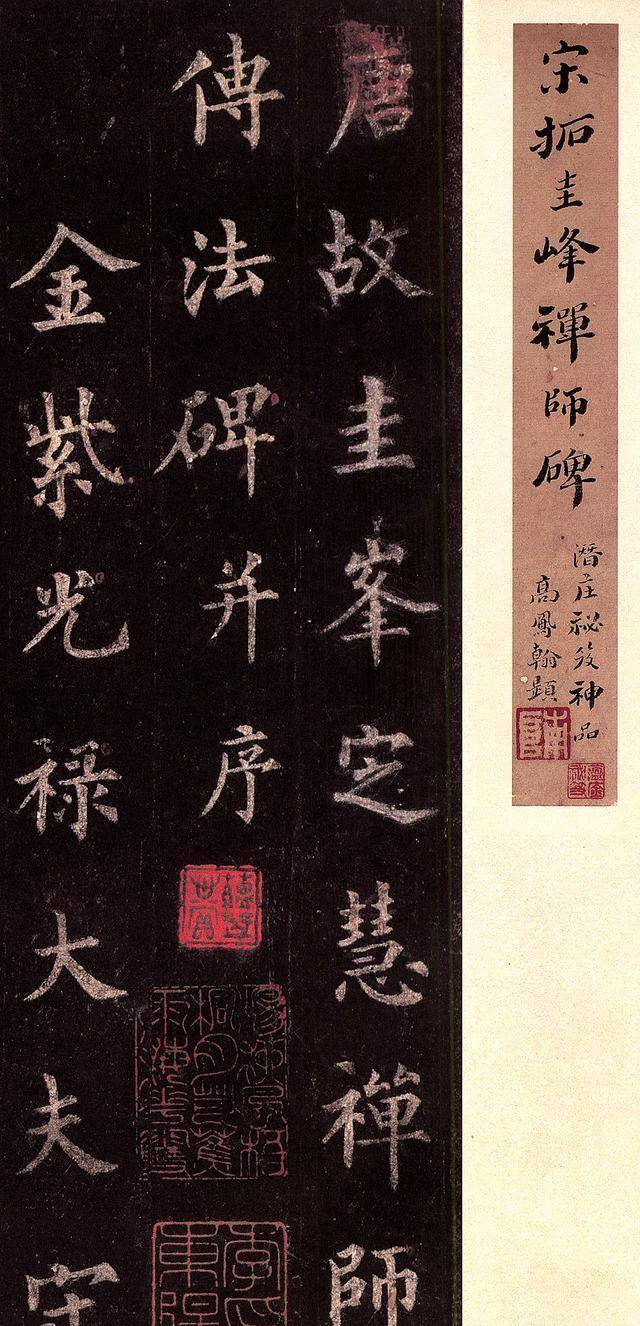 宋拓圭峰禪師碑
潛庄祕笈神品
高鳳翰題
唐故圭峯定慧禪師
傳法碑并序
金紫光禄大夫守